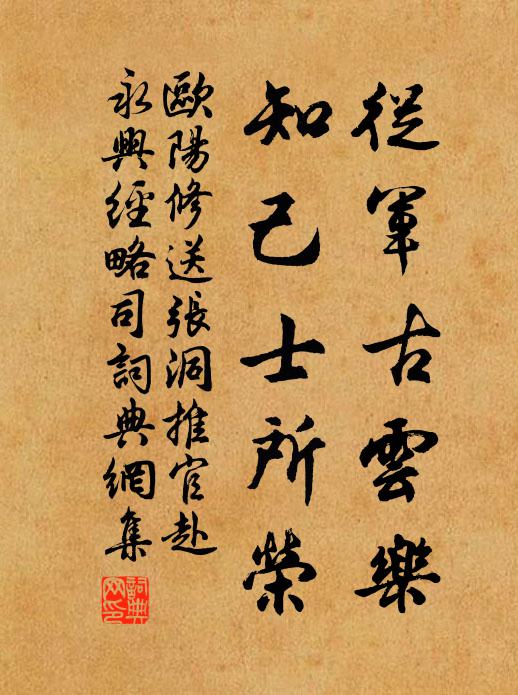 從軍古雲樂
知己士所榮
歐陽修送張洞推官赴
永興經略司詞典網集
詞典
网印